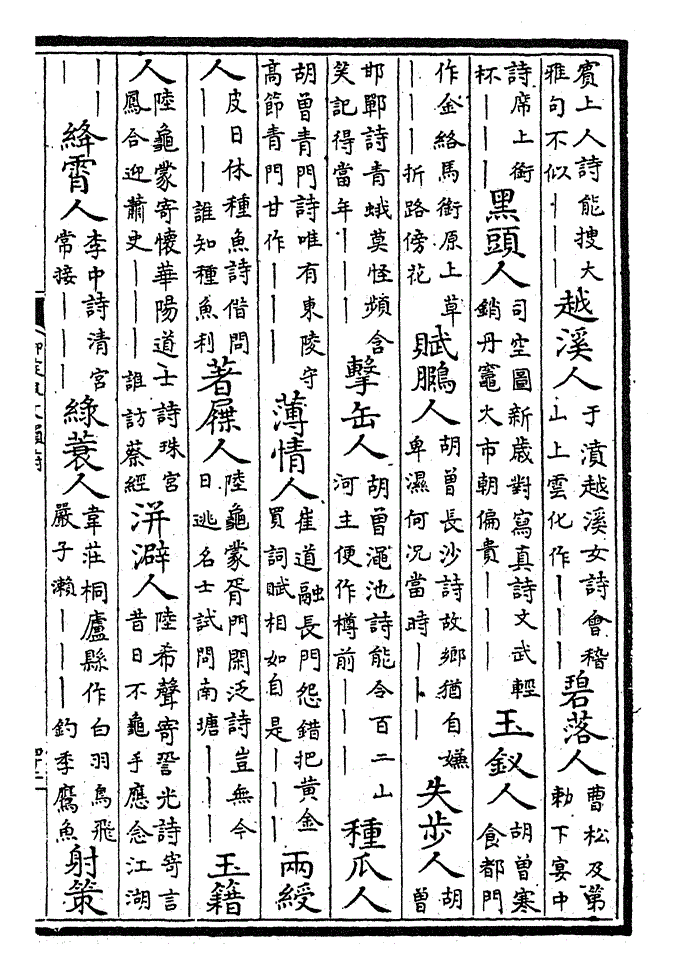 賓上人詩能搜大雅句不似丨丨丨越溪人于濆越溪女詩會稽山上雲化作丨丨丨碧落人曹松及第勅下宴中
詩席上銜杯丨丨丨黑頭人司空圖新歲對寫真詩文武輕銷丹竈火市朝偏貴丨丨丨玉釵人胡曾寒食都門
作金絡馬銜原上草丨丨丨折路傍花賦鵬人胡曾長沙詩故鄉猶自嫌卑濕何況當時丨丨丨失步人胡曾
邯鄲詩青蛾莫怪頻含笑記得當年丨丨丨擊缶人胡曾澠池詩能令百二山河主便作樽前丨丨丨種瓜人
胡曾青門詩唯有東陵守高節青門甘作丨丨丨薄情人崔道融長門怨錯把黃金買詞賦相如自是丨丨丨兩綬
人皮日休種魚詩借問丨丨丨誰知種魚利著屐人陸龜蒙胥門閑泛詩豈無今日逃名士試問南塘丨丨丨玉籍
人陸龜蒙寄懷華陽道士詩珠宮鳳合迎蕭史丨丨丨誰訪蔡經洴澼人陸希聲寄䛒光詩寄言昔日不龜手應念江湖
丨丨丨絳霄人李中詩清宮常接丨丨丨綠蓑人韋莊桐廬縣作白羽鳥飛嚴子瀨丨丨丨釣季鷹魚射策